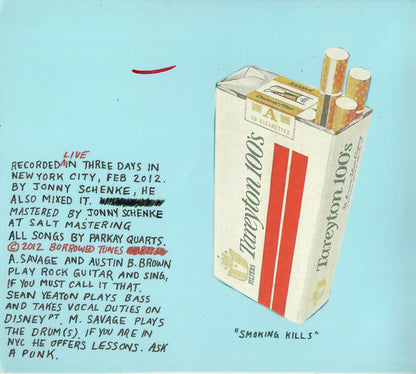 LIVE
RECORDED IN THREE DAYS IN
NEW YORK CITY, FEB 2012.
BY JONNY SCHENKE, HE
ALSO MIXED IT.
MASTERED BY JONNY SCHENKE
AT SALT MASTERING
ALL SONGS BY PARKAY QUARTS.
© 2012 BORROWED TUNES
A. SAVAGE AND AUSTIN B. BROWN
PLAY ROCK GUITAR AND SING,
IF YOU MUST CALL IT THAT.
SEAN YEATON PLAYS BASS
AND TAKES VOCAL DUTIES ON
DISNEY PT. M. SAVAGE PLAYS
THE DRUM(S). IF YOU ARE IN
NYC HE OFFERS LESSONS. ASK
A PUNK.
A
20 CIGARETTES
FILTERS
Tareyton 100's
Tareyton 100's
"SMOKING KILLS"